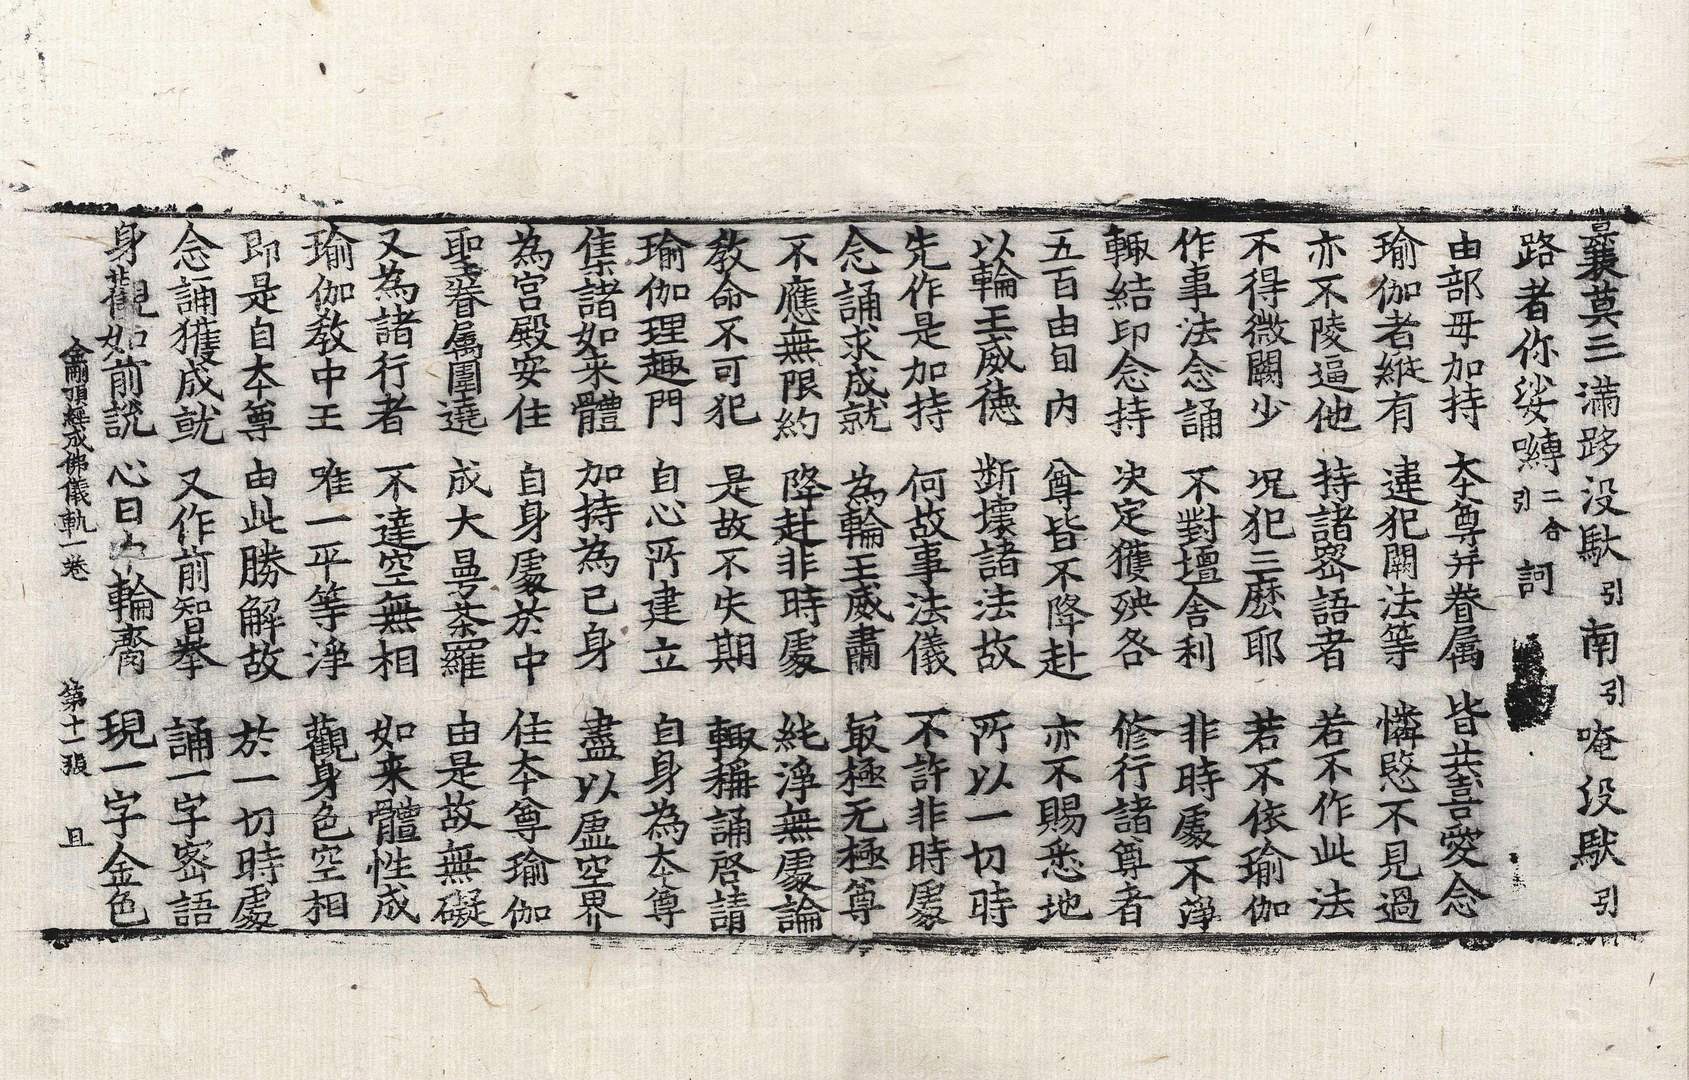 曩莫三滿跢没馱引南引唵没馱引
路者你娑嚩二合引訶
由部母加持 本尊并眷属 皆共喜愛念
瑜伽者縱有 違犯闕法等 憐愍不見過
亦不陵逼他 持諸密語者 若不作此法
不得微闕少 呪犯三麽耶 若不依瑜伽
作事法念誦 不對壇舍利 非時處不淨
輙結印念持 决定獲殃各 修行諸尊者
五百由旬内 尊皆不降赴 亦不賜悉地
以輪王威德 断壞諸法故 所以一切時
先作是加持 何故事法儀 不許非時處
念誦求成就 為輪王威肅 㝡極无極尊
不應無限約 降赴非時處 純淨無處論
教命不可犯 是故不失期 輙稱誦啓請
瑜伽理趣門 自心所建立 自身為本尊
集諸如来體 加持為己身 盡以虚空界
為宮殿安住 自身處於中 住本尊瑜伽
聖眷属圍遶 成大曼荼羅 由是故無礙
又為諸行者 不達空無相 如来體性成
瑜伽教中王 唯一平等淨 觀身色空相
即是自本尊 由此勝解故 於一切時處
念誦獲成就 又作前智拳 誦一字密語
身觀如前説 心日 輪齊 現一字金色
金剛頂經成佛儀軌一卷 第十一張 且